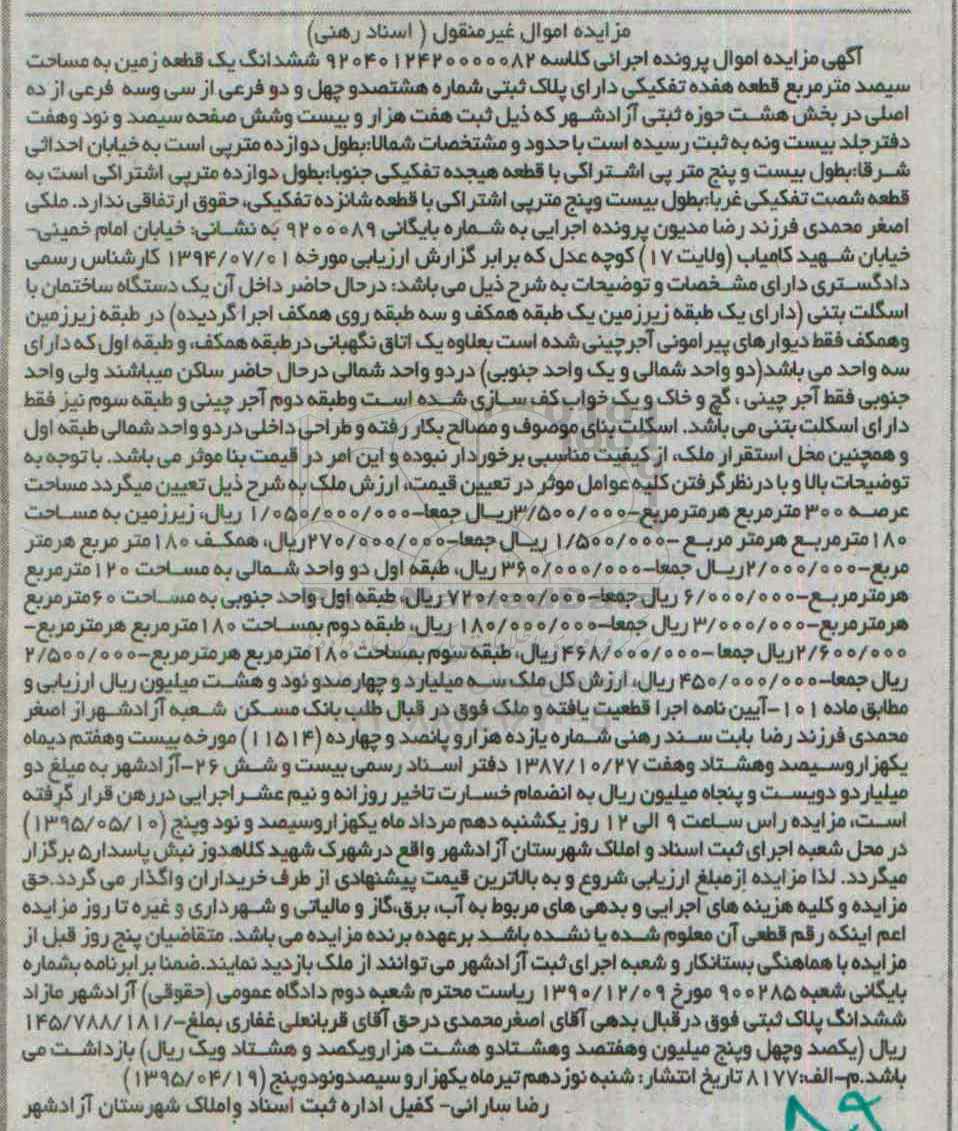 مزایده اموال غیرمنقول ( اسناد رهنی)
آگهی مزایده اموال پرونده اجرائی کلاسه ۹۲۰۴۰۱۲۴۲۰۰۰۰۰۸۲ ششدانگ یک قطعه زمین به مساحت
سیصد مترمربع قطعه هفده تفکیکی دارای پلاک ثبتی شماره هشتصدو چهل و دو فرعی از سی وسه فرعی از ده
اصلی در بخش هشت حوزه ثبتی آزادشهر که ذیل ثبت هفت هزار و بیست وشش صفحه سیصد و نود وهفت
دفترجلد بیست ونه به ثبت رسیده است با حدود و مشتخصات شمالا:بطول دوازده مترپی است به خیابان احداثی
شرقا:بطول بیست و پنج متر پی اشتراکی با قطعه هیجده تفکیکی جنوبا:بطول دوازده مترپی اشتراکی است به
قطعه شصت تفکیکی غربا:بطول بیست وپنج مترپی اشتراکی با قطعه شانزده تفکیکی، حقوق ارتفاقی ندارد. ملکی
اصغر محمدی فرزند رضا مدیون پرونده اجرایی به شماره بایگانی ۹۲۰۰۰۸۹ به نشانی: خیابان امام خمینی-
خیابان شهید کامیاب (ولایت ۱۷) کوچه عدل که برابر گزارش ارزیابی مورخه ۱۳۹۴/۰۷/۰۱ کارشناس رسمی
دادگستری دارای مشخصات و توضیحات به شرح ذیل می باشد: درحال حاضر داخل آن یک دستگاه ساختمان با
اسگلت بتنی (دارای یک طبقه زیرزمین یک طبقه همکف و سه طبقه روی همکف اجرا گردیده) در طبقه زیرزمین
وهمکف فقط دیوارهای پیرامونی آجرچینی شده است بعلاوه یک اتاق نگهبانی در طبقه همکف، و طبقه اول که دارای
سه واحد می باشد(دو واحد شمالی و یک واحد جنوبی) دردو واحد شمالی درحال حاضر ساکن میباشند ولی واحد
جنوبی فقط آجر چینی ، گچ و خاک و یک خواب کف سازی شده است وطبقه دوم آجر چینی و طبقه سوم نیز فقط
دارای اسکلت بتنی می باشد. اسکلت بنای موصوف و مصالح بکار رفته و طراحی داخلی در دو واحد شمالی طبقه اول
و همچنین محل استقرار ملک، از کیفیت مناسبی برخوردار نبوده و این امر در قیمت بنا موثر می باشد. با توجه به
توضیحات بالا و با درنظر گرفتن کلیه عوامل موثر در تعیین قیمت، ارزش ملک به شرح ذیل تعیین میگردد مساحت
عرصه ۳۰۰ مترمربع هرمترمربع-۳/۵۰۰/۰۰۰ریال جمعا-۱/۰۵۰/۰۰۰/۰۰۰ ریال، زیرزمین به مساحت
۱۸۰مترمربع هرمتر مربع -۱/۵۰۰/۰۰۰ ریال جمعا-۲۷۰/۰۰۰/۰۰۰ریال، همکف ۱۸۰متر مربع هرمتر
مربع-۲/۰۰۰/۰۰۰ریال جمعا-۳۶۰/۰۰۰/۰۰۰ ریال، طبقه اول دو واحد شمالی به مساحت ۱۲۰مترمربع
هرمترمربع-۶/۰۰۰/۰۰۰ ریال جمعا-۷۲۰/۰۰۰/۰۰۰ ریال، طبقه اول واحد جنوبی به مساحت ۶۰مترمربع
هرمترمربع-۳/۰۰۰/۰۰۰ ریال جمعا-۱۸۰/۰۰۰/۰۰۰ ریال، طبقه دوم بمساحت ۱۸۰مترمربع هرمترمربع-
۲/۶۰۰/۰۰۰ریال جمعا -۴۶۸/۰۰۰/۰۰۰ ریال، طبقه سوم بمساحت ۱۸۰مترمربع هرمترمربع-۲/۵۰۰/۰۰۰
ریال جمعا-۴۵۰/۰۰۰/۰۰۰ ریال، ارزش کل ملک سه میلیارد و چهارصدو نود و هشت میلیون ریال ارزیابی و
مطابق ماده ۱۰۱-آیین نامه اجرا قطعیت یافته و ملک فوق در قبال طلب بانک مسکن شعبه آزادشهراز اصغر
محمدی فرزند رضا بابت سند رهنی شماره یازده هزارو پانصد و چهارده (۱۱۵۱۴) مورخه بیست وهفتم دیماه
یکهزاروسیصد وهشتاد وهفت ۱۳۸۷/۱۰/۲۷ دفتر اسناد رسمی بیست و شش ۲۶-آزادشهر به مبلغ دو
میلیاردو دویست و پنجاه میلیون ریال به انضمام خسارت تاخیر روزانه و نیم عشر اجرایی دررهن قرار گرفته
است، مزایده راس ساعت ۹ الی ۱۲ روز یکشنبه دهم مرداد ماه یکهزاروسیصد و نود وپنج (۱۳۹۵/۰۵/۱۰)
در محل شعبه اجرای ثبت اسناد و املاک شهرستان آزادشهر واقع درشهرک شهید کلاهدوز نبش پاسدار۵ برگزار
میگردد. لذا مزایده ازمبلغ ارزیابی شروع و به بالاترین قیمت پیشنهادی از طرف خریداران واگذار می گردد.حق
مزایده و کلیه هزینه های اجرایی و بدهی های مربوط به آب، برق،گاز و مالیاتی و شهرداری و غیره تا روز مزایده
اعم اینکه رقم قطعی آن معلوم شده یا نشده باشد برعهده برنده مزایده می باشد. متقاضیان پنج روز قبل از
مزایده با هماهنگی بستانکار و شعبه اجرای ثبت آزادشهر می توانند از ملک بازدید نمایند.ضمنا برابرنامه بشماره
بایگانی شعبه ۹۰۰۲۸۵ مورخ ۱۳۹۰/۱۲/۰۹ ریاست محترم شعبه دوم دادگاه عمومی (حقوقی) آزادشهر مازاد
ششدانگ پلاک ثبتی فوق در قبال بدهی آقای اصغرمحمدی درحق آقای قربانعلی غفاری بملغ-/۱۴۵/۷۸۸/۱۸۱
ریال (یکصد وچهل وپنج میلیون وهفتصد وهشتادو هشت هزارویکصد و هشتاد ویک ریال) بازداشت می
باشد.م-الف:۸۱۷۷ تاریخ انتشار: شنبه نوزدهم تیرماه یکهزارو سیصدونودوپنج (۱۳۹۵/۰۴/۱۹)
رضا سارانی- کفیل اداره ثبت اسناد واملاک شهرستان آزادشهر
۸۹